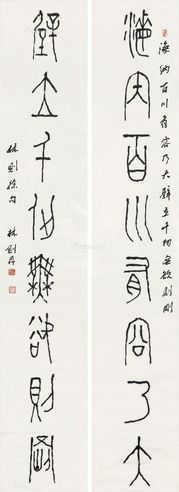 海纳百川有容乃大壁立千仞无欲则刚
海内百川有容乃大
壁立千仞無欲則剛
林则徐句 林剑丹